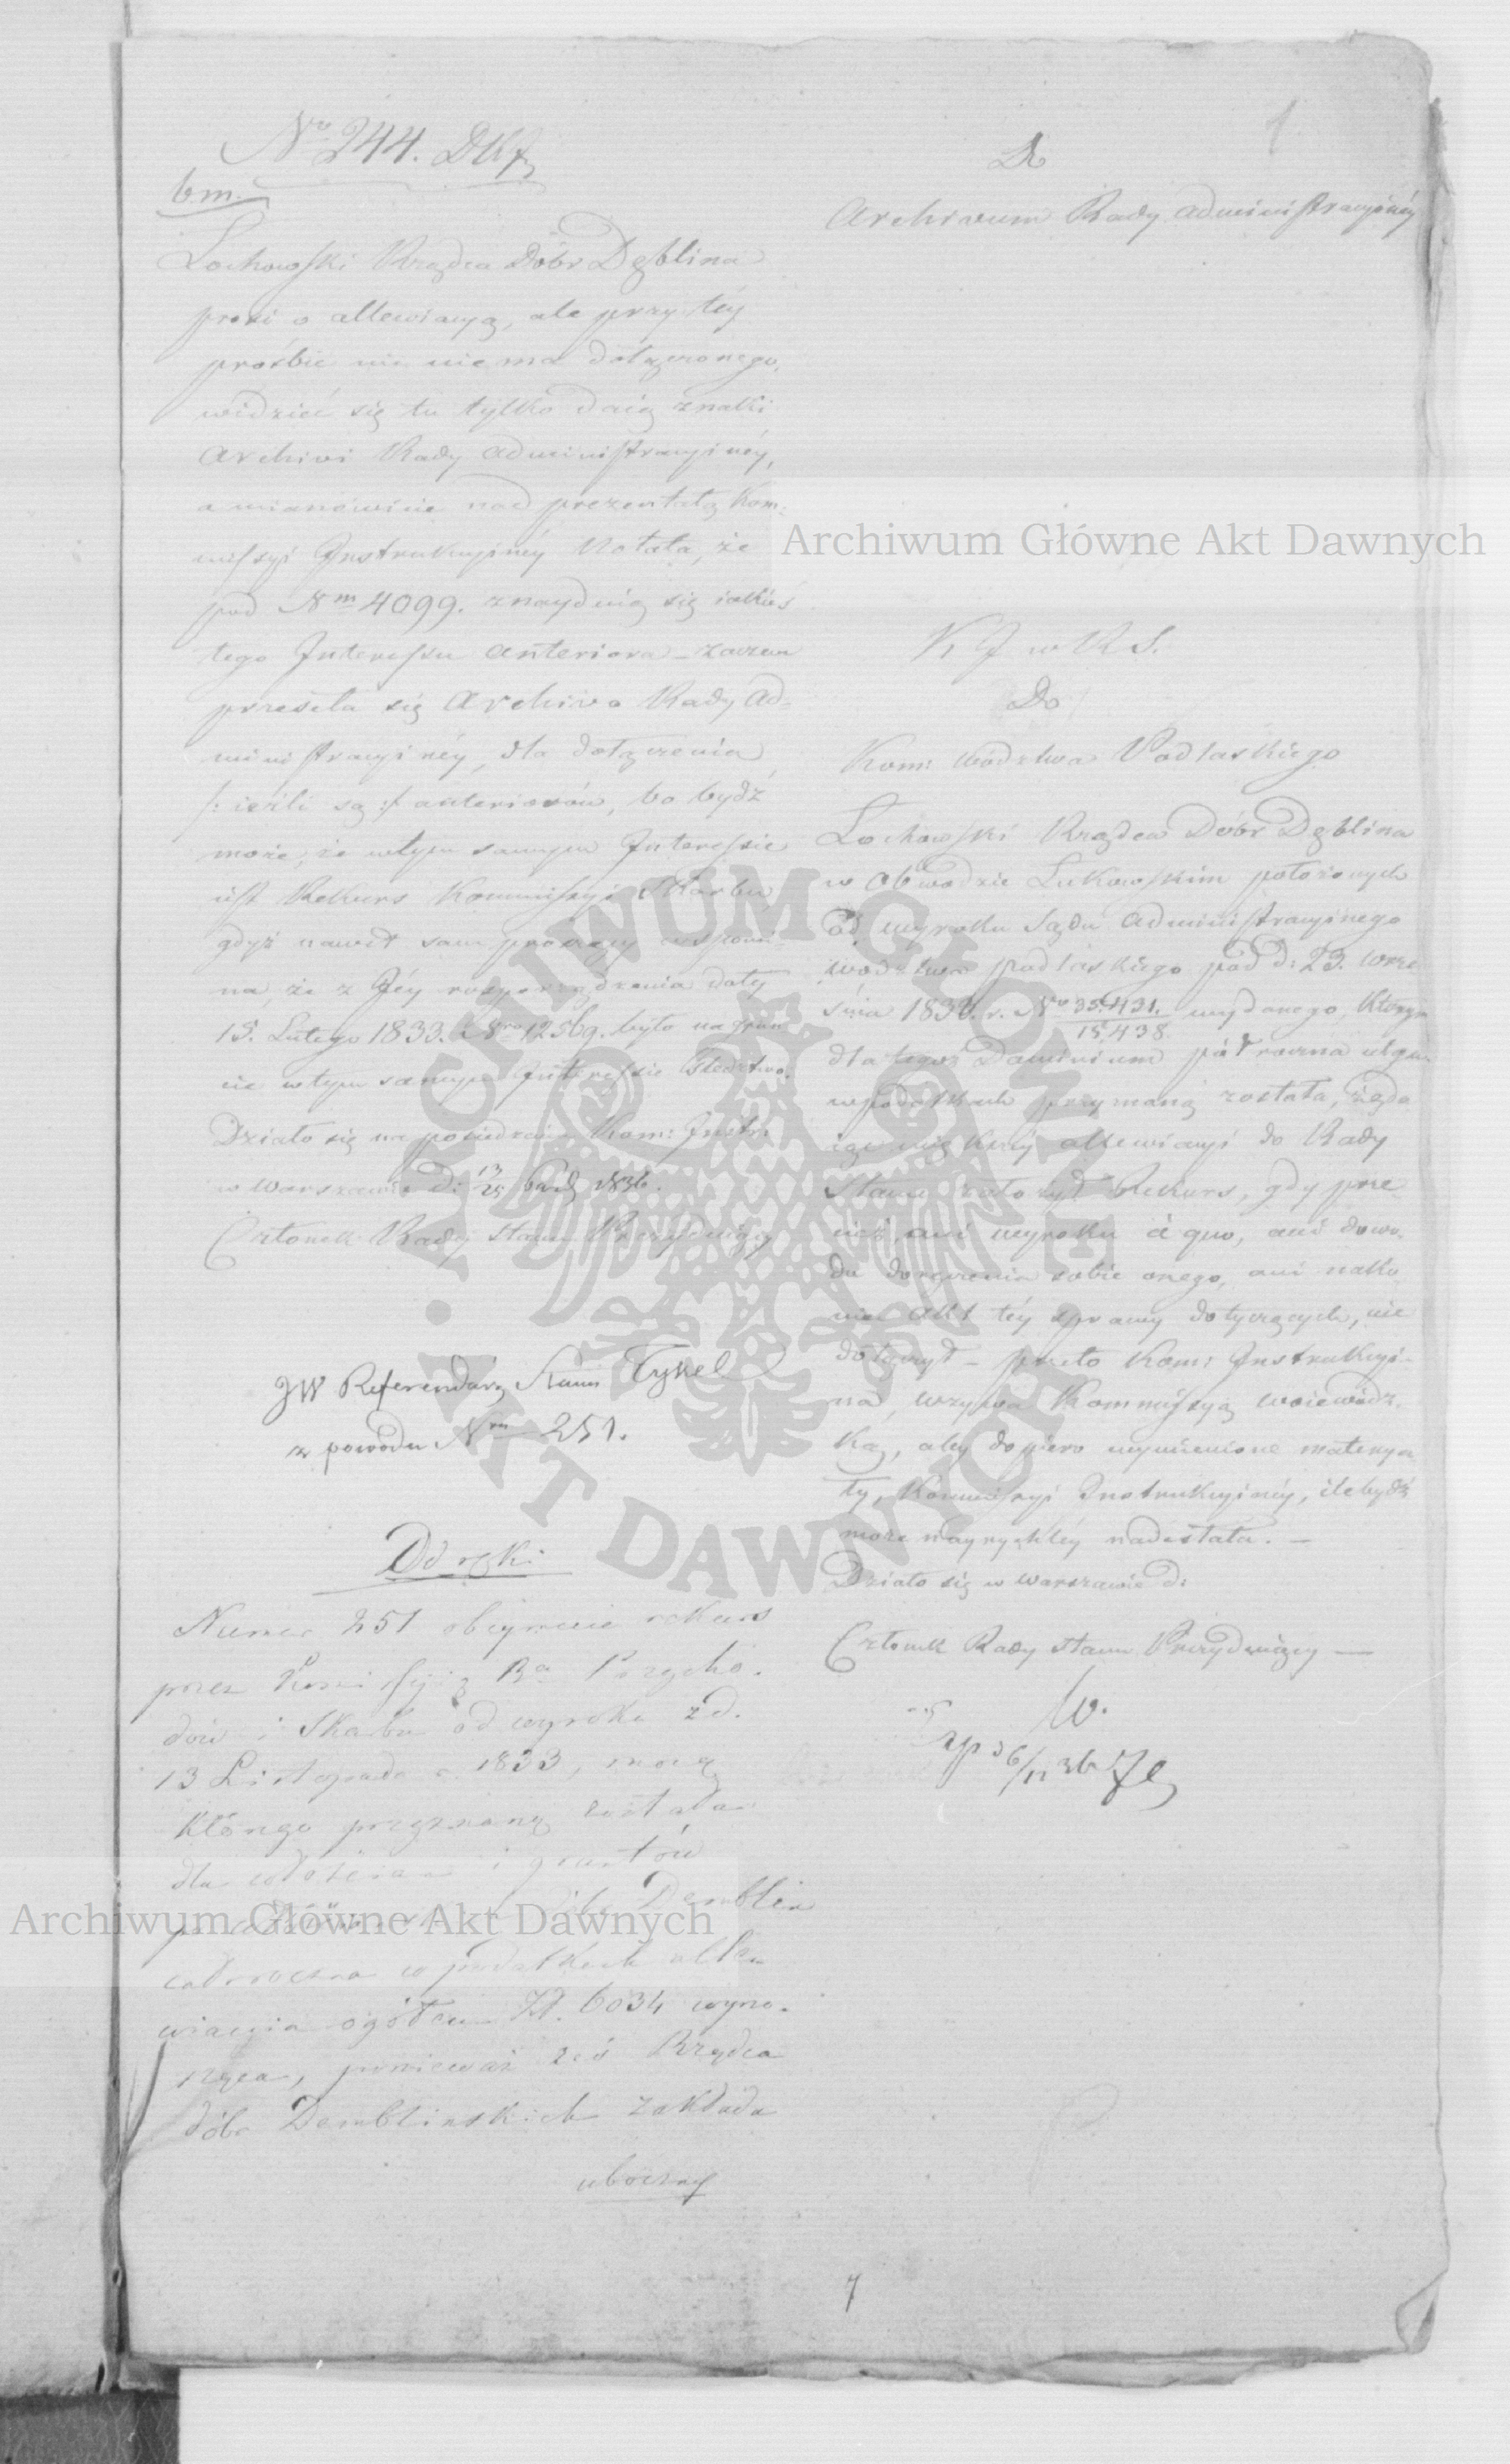 No 244.
bm.
Lochowski Rządca Dóbr Dęblina
prosi o allewiacyą, ale przy téy
prośbie nic nie ma dołączonego,
widzieć się tu tylko daią znaki
Archiwi Rady Administracyinéy,
a mianowicie nad prezentatą Kom:
missyi Instrukcyinéy Notata, że
pod Nm 4099. znayduią się iakieś
tego Interessu anteriora – zaczem
przeseła się Archiwo Rady Ad=
ministracyinéy, dla dołączenia
/: ieżli są :/ anteriorów, bo bydź
może, że wtym samym Interessie
iest Rekurs Kommissyi Skarbu,
gdyż nawet sam proszący wspomi=
na, że z Jéy rozporządzenia daty
15. Lutego 1833. Nro 12569. było na grun
cie wtym samym Interessie Śledztwo.
Działo się na posiedzeniu Kom: Instr:
w Warszawie d: 13/25 1836.
Członek Rady Stanu Prezyduiący
JW Referendarz Stanu Tykel
z powodu Nru 251.
Od ręki
Numer 251 obeymuie rekurs
przez Kommissyią Rą Przycho.
dów i Skarbu od wyroku z d.
13 Listopada 1833, mocą
którego przyznaną została
dla włościan i gruntów
Dóbr Demblin
całoroczna w podatkach alle
wiacyia ogółem Zł. 6034 wyno.
sząca, ponieważ zaś Rządca
dóbr Demblinskich zakłada
uboczny
1
Do
Archiwum Rady Administracyinéy
K J w R S.
Do
Kom: Wództwa Podlaskiego
Lochowski Rządca Dóbr Dęblina
w Obwodzie Łukowskim położonych
od wyroku Sądu Administracyinego
Wodztwa Podlaskiego pod d: 23. Wrze
śnia 1833. r. No 35.431./15.438. wydanego, którym
dla tegoż Dominium półroczna ulga
w podatkach przyznaną została, żąda
iąc większéy allewiacyi do Rady
Stanu założył Rekurs, gdy prze
cież ani wyroku à quo, ani dowo.
du doręczenia sobie onego, ani nako
niec Akt téy sprawy dotyczących, nie
dołączył – przeto Kom: Instrukcyi-
na, wzywa Kommissyą Woiewódz.
ką, aby dopiero wymienione materya
ły, Kommissyi Instrukcyinéy, ile bydź
może nayrychléy nadesłała. –
Działo się w Warszawie d:
Członek Rady Stanu Prezyduiący —
W.
7
Archiwum Główne Akt Dawnych
Archiwum Główne Akt Dawnych
· ARCHIWUM GŁÓWNE · AKT DAWNYCH